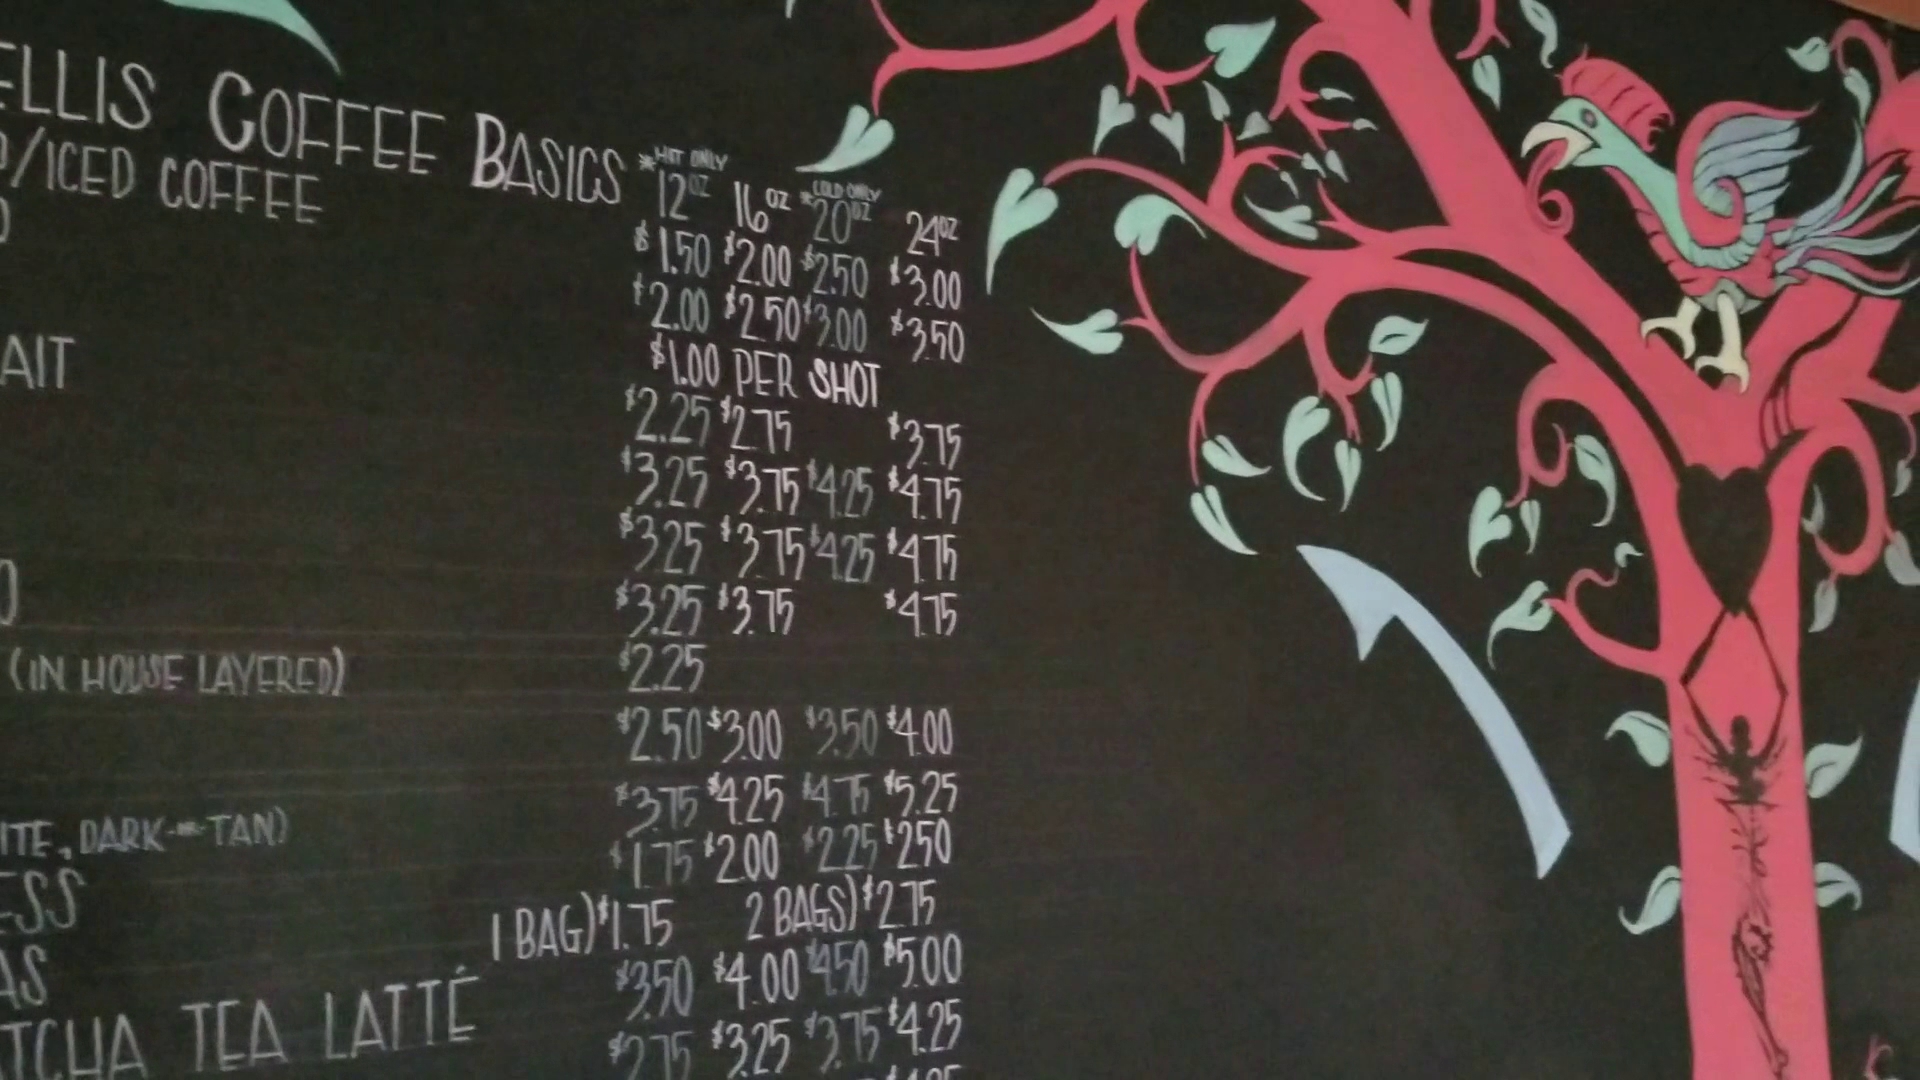 ELLIS COFFEE BASICS *HOT ONLY 12OZ 16OZ *COLD ONLY 20OZ 24OZ
/ICED COFFEE $1.50 $2.00 $2.50 $3.00
$2.00 $2.50 $3.00 $3.50
$1.00 PER SHOT
AIT $2.25 $2.75 $3.75
$3.25 $3.75 $4.25 $4.75
$3.25 $3.75 $4.25 $4.75
O $3.25 $3.75 $4.75
(IN HOUSE LAYERED) $2.25
$2.50 $3.00 $3.50 $4.00
$3.75 $4.25 $4.75 $5.25
ITE, DARK-OR-TAN) $1.75 $2.00 $2.25 $2.50
ESS 1 BAG) $1.75 2 BAGS) $2.75
AS $3.50 $4.00 $4.50 $5.00
TCHA TEA LATTÉ $2.75 $3.25 $3.75 $4.25